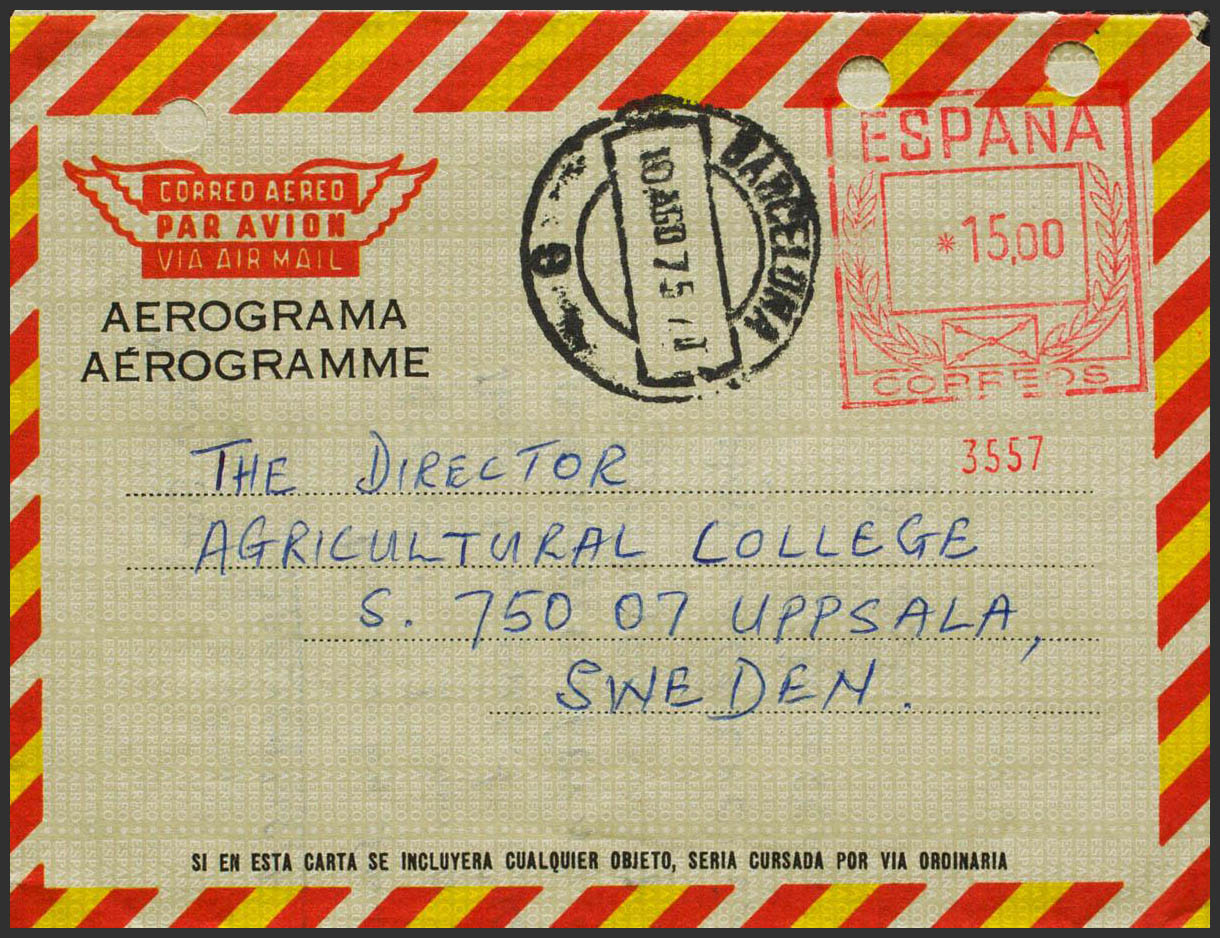 CORREO AEREO
PAR AVION
VIA AIR MAIL
AEROGRAMA
AÉROGRAMME
BARCELONA
AGO 75
ESPAÑA
*15,00
CORREOS
3557
THE DIRECTOR
AGRICULTURAL COLLEGE
S. 750 07 UPPSALA,
SWEDEN.
SI EN ESTA CARTA SE INCLUYERA CUALQUIER OBJETO, SERIA CURSADA POR VIA ORDINARIA